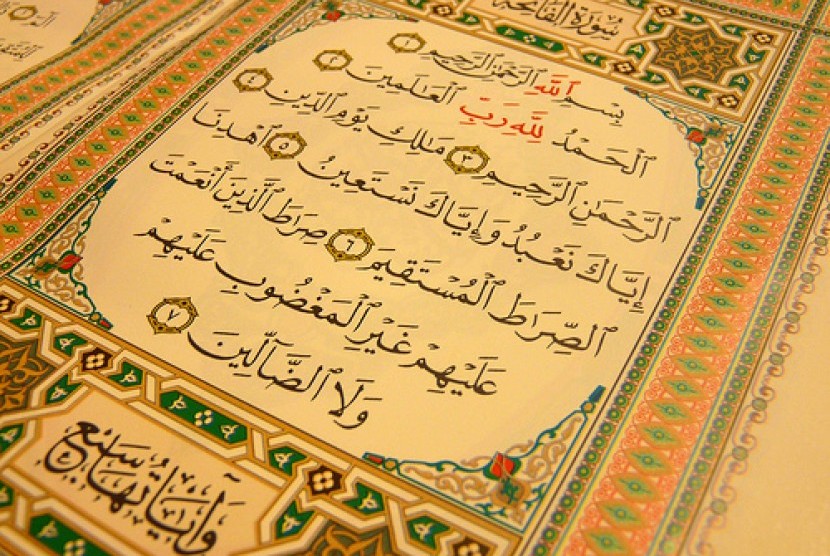 سُورَةُ الفَاتِحَة
بِسْمِ ٱللَّهِ ٱلرَّحْمَٰنِ ٱلرَّحِيمِ ١
ٱلْحَمْدُ لِلَّهِ رَبِّ ٱلْعَٰلَمِينَ ٢
ٱلرَّحْمَٰنِ ٱلرَّحِيمِ ٣ مَٰلِكِ يَوْمِ ٱلدِّينِ ٤
إِيَّاكَ نَعْبُدُ وَإِيَّاكَ نَسْتَعِينُ ٥ ٱهْدِنَا
ٱلصِّرَاطَ ٱلْمُسْتَقِيمَ ٦ صِرَاطَ ٱلَّذِينَ أَنْعَمْتَ
عَلَيْهِمْ غَيْرِ ٱلْمَغْضُوبِ عَلَيْهِمْ
وَلَا ٱلضَّآلِّينَ ٧
وَآيَاتُهَا سَبْعٌ